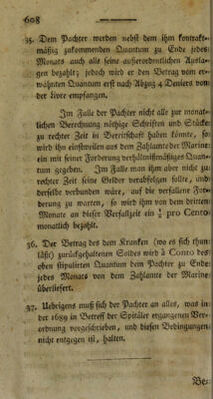 608
35. Dem Pachter werden nebst dem ihm kontrakt-
mäßig zukommenden Quantum zu Ende jedes
Monats auch alle seine außerordentlichen Ausla-
gen bezahlt; jedoch wird er den Betrag vom er-
wähnten Quantum erst nach Abzug 4 Deniers von
der Livre empfangen.
Im Falle der Pachter nicht alle zur monat-
lichen Berechnung nöthige Schriften und Stücke
zu rechter Zeit in Bereitschaft haben könnte, so
wird ihm einsweilen aus dem Zahlamte der Marine
ein mit seiner Forderung verhältnißmäßiges Quan-
tum gegeben. Im Falle man ihm aber nicht zu
rechter Zeit seine Gelder verabfolgen sollte, und
derselbe verbunden wäre, auf die verfallene For-
derung zu warten, so wird ihm von dem dritten
Monate an dieser Verfallzeit ein ½ pro Cento
monatlich bezahlt.
36. Der Betrag des dem Kranken (wo es sich thun
läßt) zurückgehaltenen Soldes wird à Conto des
oben stipulirten Quantum dem Pachter zu Ende
jedes Monats von dem Zahlamte der Marine
überliefert.
37. Uebrigens muß sich der Pachter an alles, was in
der 1689 in Betreff der Spitäler ergangenen Ver-
ordnung vorgeschrieben, und diesen Bedingungen
nicht entgegen ist, halten.
Be-